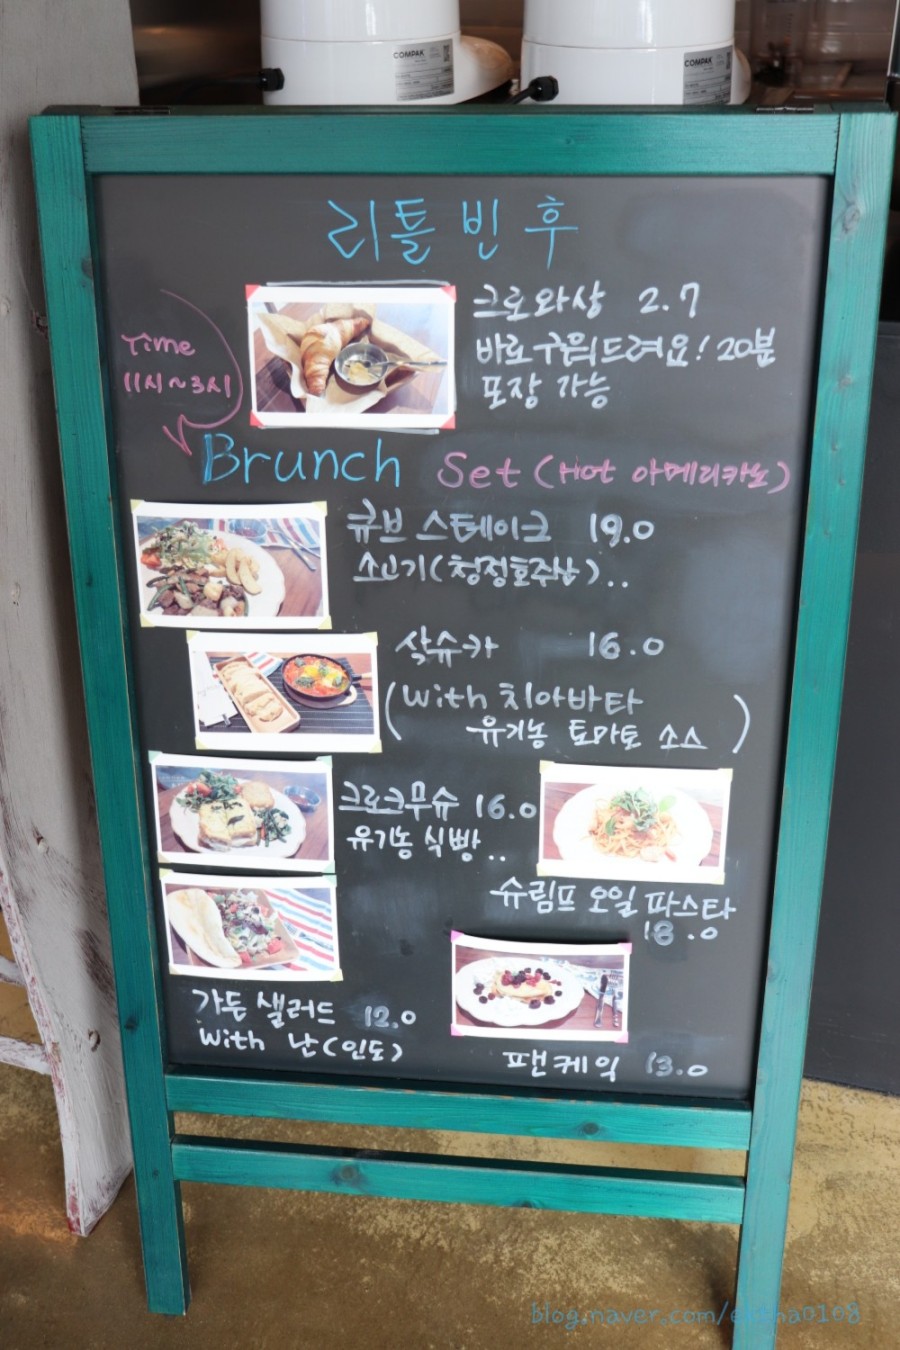 COMPAK
COMPAK
리틀빈후
크로와상 2.7
바로구워드려요! 20분
포장 가능
Time
11시~3시
Brunch Set (Hot 아메리카노)
큐브 스테이크 19.0
소고기(청정호주산)..
샥슈카 16.0
(with 치아바타
유기농 토마토 소스)
크로크무슈 16.0
유기농 식빵..
슈림프 오일 파스타
18.0
가든 샐러드 12.0
with 난(인도)
팬케익 13.0